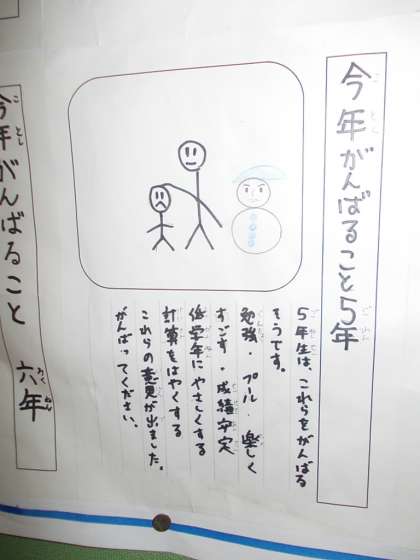 今年がんばること5年
5年生は、これらをがんばる
そうです。
勉強・プール・楽しく
すごす・成績
低学年にやさしくする
計算をはやくする
これらの意見が出ました。
がんばってください。
今年がんばること 六年